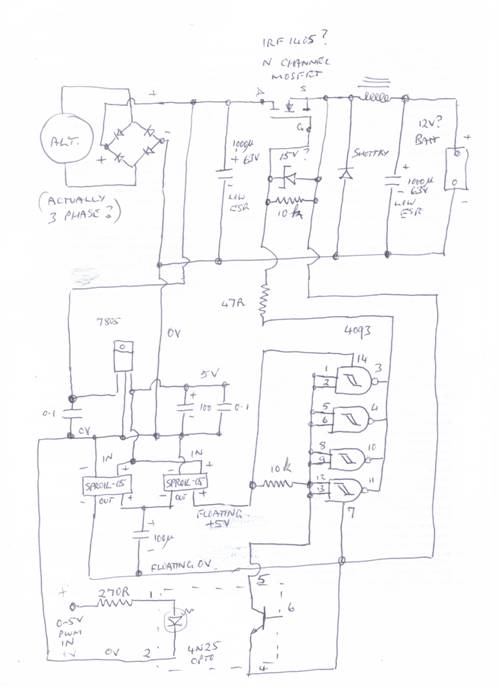 IRF1405?
N CHANNEL
MOSFET
+
D
S
G
ALT.
+
-
(ACTUALLY
3 PHASE?)
1000µ
+ 63V
-
LOW
ESR
15V?
10k
SHOTTKY
+
1000µ
63V
-
LOW
ESR
12V?
BATT
+
-
47R
7805
0V
4093
14
1
2
3
5
6
4
8
9
10
12
13
11
7
5V
0.1
+
100
-
0.1
0V
-
IN
+
-
IN
+
-
OUT
+
-
OUT
+
10k
FLOATING
+5V
+
100µ
-
FLOATING 0V
+
270R
1
0-5V
PWM
IN
0V
2
4N25
OPTO
5
6
4